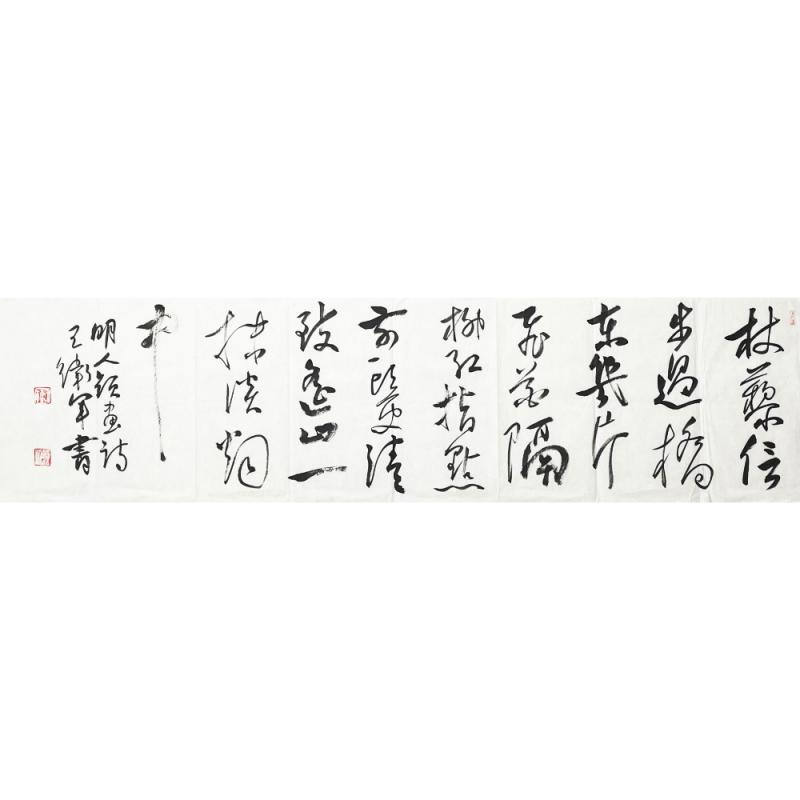 杖藜信
步過橋
東幾片
飛花隔
柳紅指點
前頭更清
致遙山一
抹淡烟
中
明人題畫詩
王衛軍書